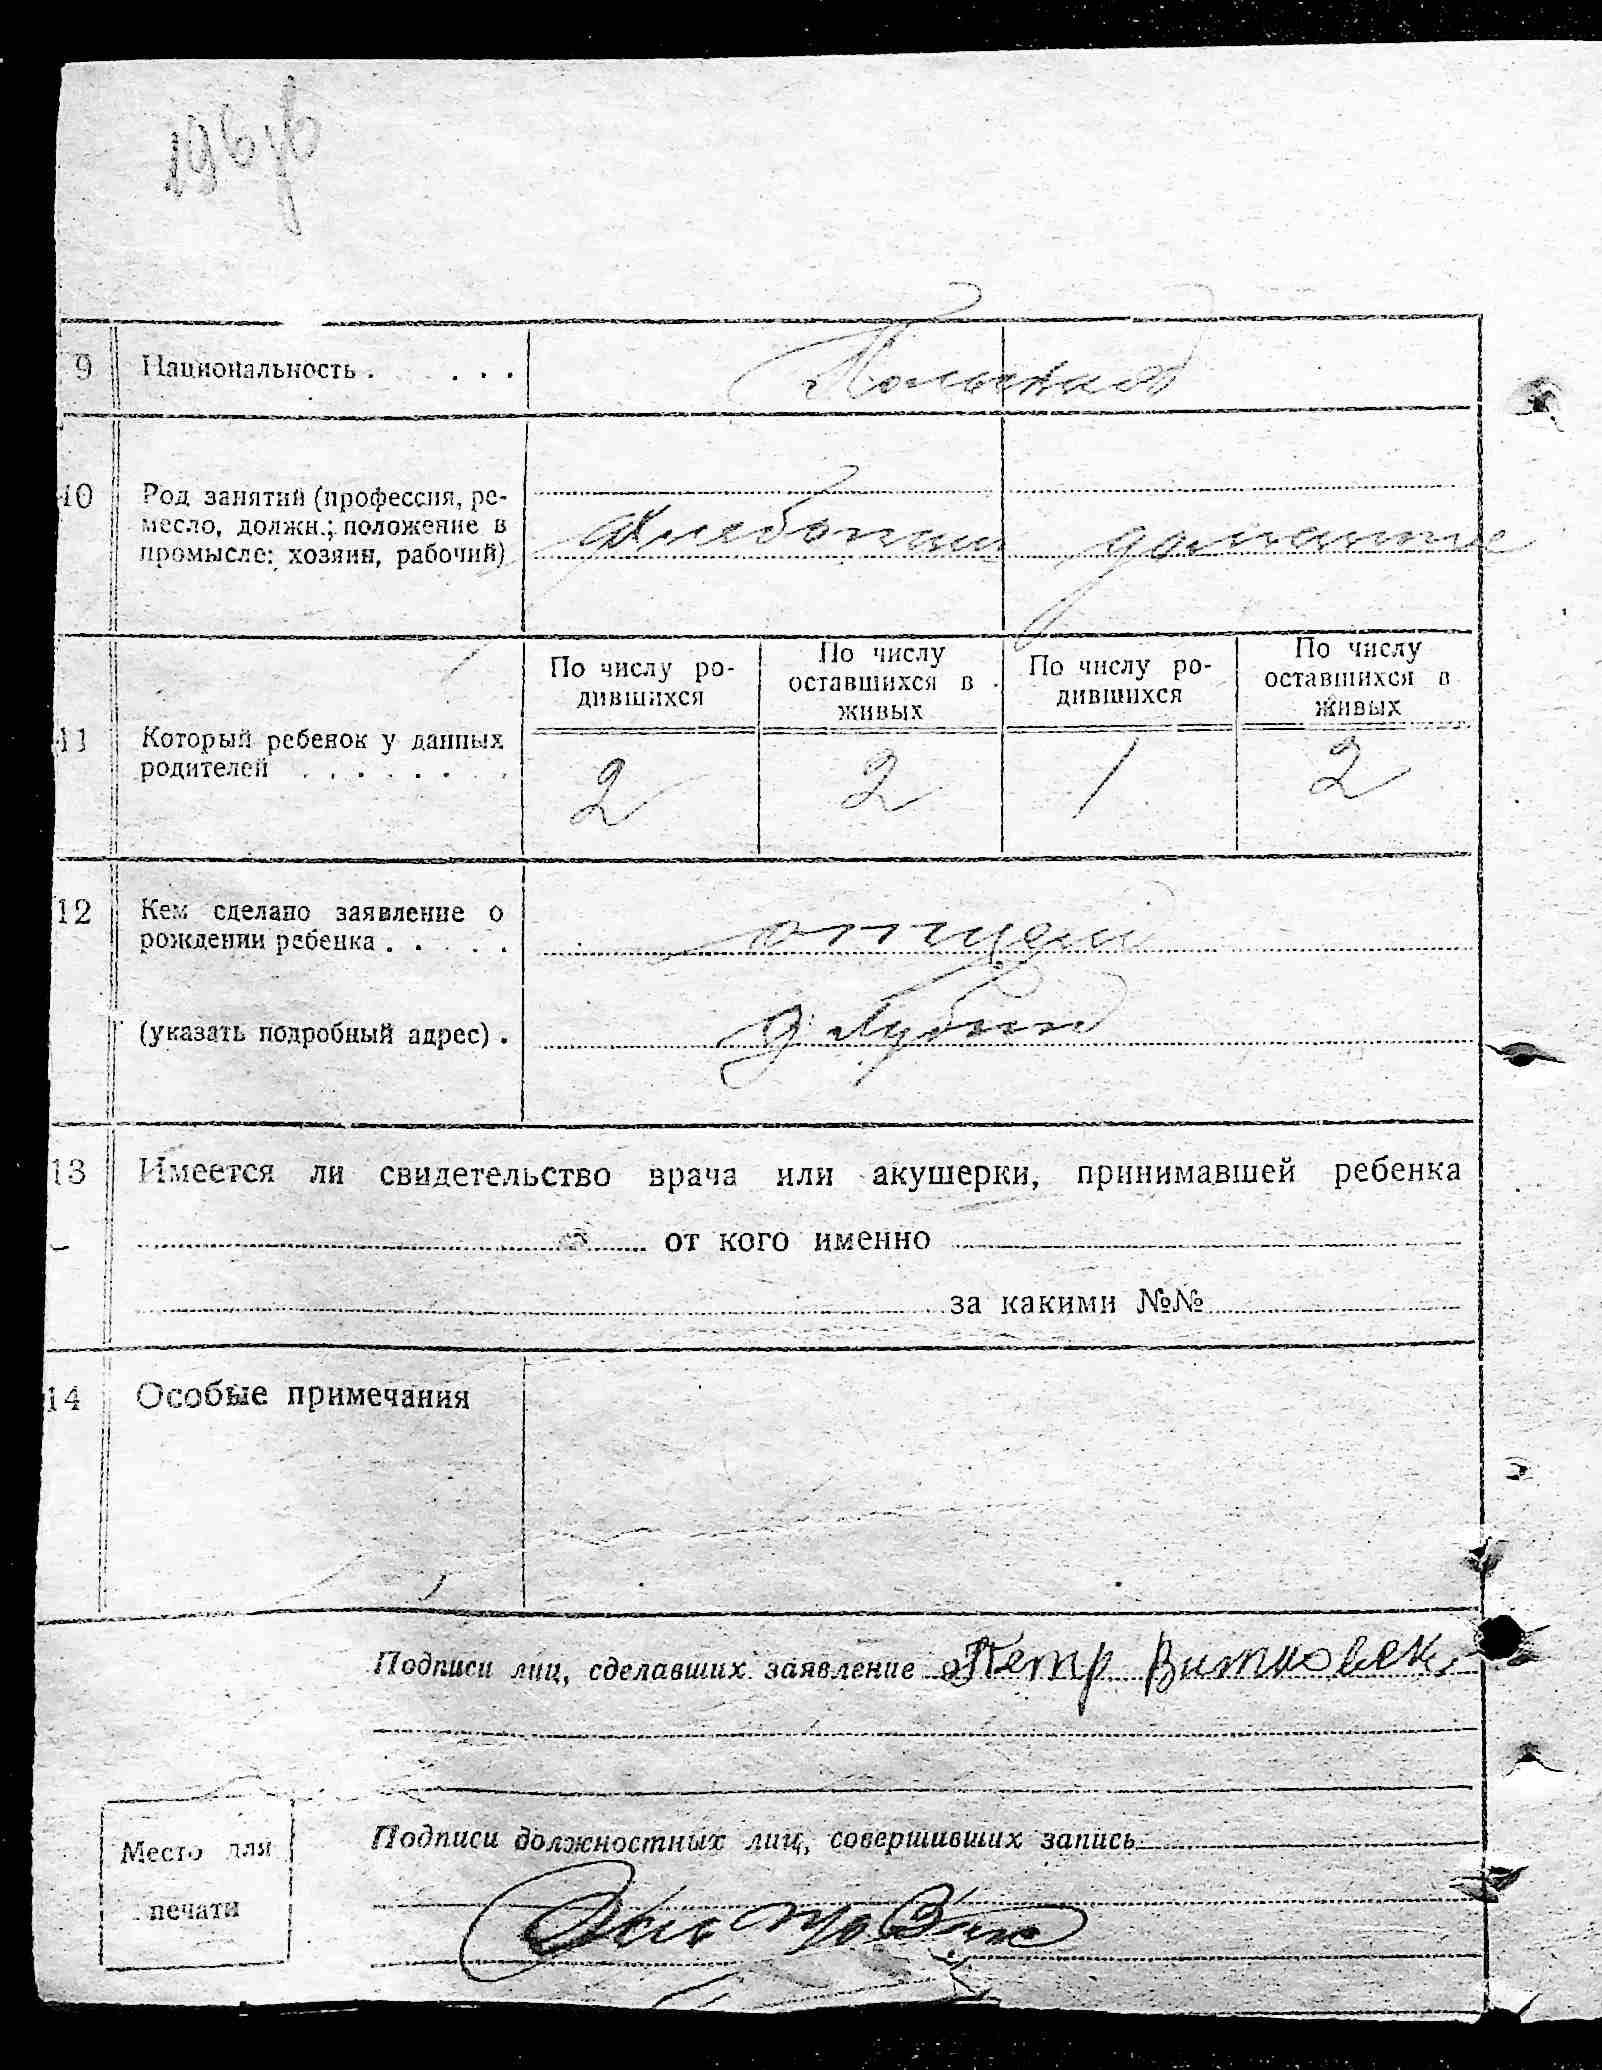 9 Национальность . . . . Польская
10 Род занятий (профессия, ре-
месло, должн.; положение в
промысле: хозяин, рабочий)
Хлебопаш домашние
11 Который ребенок у данных
родителей . . . . . . . .
По числу ро-
дившихся
По числу
оставшихся в
живых
По числу ро-
дившихся
По числу
оставшихся в
живых
2 2 1 2
12 Кем сделано заявление о
рождении ребенка . . . . .
отцем
(указать подробный адрес) .
13 Имеется ли свидетельство врача или акушерки, принимавшей ребенка
от кого именно
за какими №№
14 Особые примечания
Подписи лиц, сделавших заявление Петр Витковск
Подписи должностных лиц, совершивших запись
Место для
печати